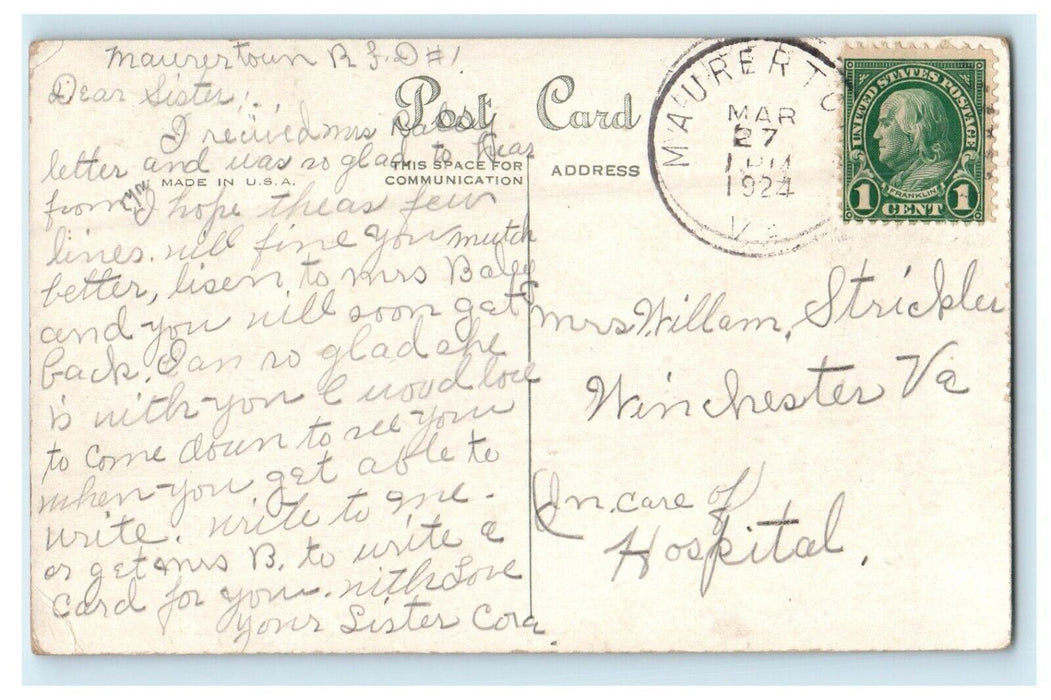 Maurertown R.F.D #1
Dear Sister;.,
I recived mrs
letter and was so glad to hear
from you I hope theas few
lines. will fine you mutch
better, lisen to Mrs Baley
and you will soon get
back. I an so glad she
is with you I wood love
to come down to see you
when you get able to
write. write to me.
or get Mrs B. to write a
card for you. with Love
your Sister Cora
Post Card
MADE IN U.S.A.
THIS SPACE FOR
COMMUNICATION
ADDRESS
MAURERTO
MAR
27
1 PM
1924
VA
UNITED STATES POSTAGE
FRANKLIN
1 CENT 1
Mrs Willam, Strickler
Winchester Va
In care of
Hospital.